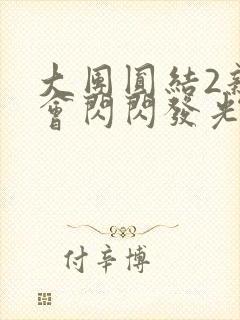 大團圓結2新
會閃閃發光
付辛博